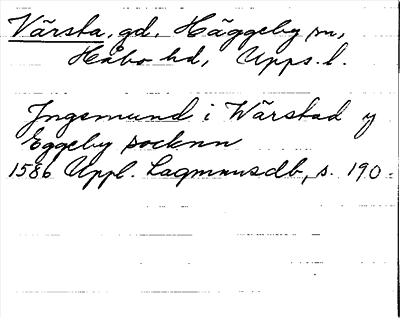 Värsta, gd, Häggeby sn,
Håbo hd, Upps. l.
Ingemund i Wärstad y
Eggeby socknn
1586 Uppl. Lagmansdb, s. 190.